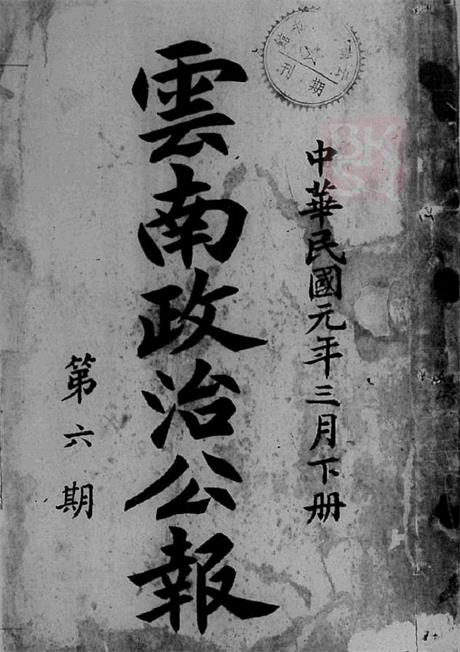 中華民國元年三月下册
雲南政治公報
第六期
期刊